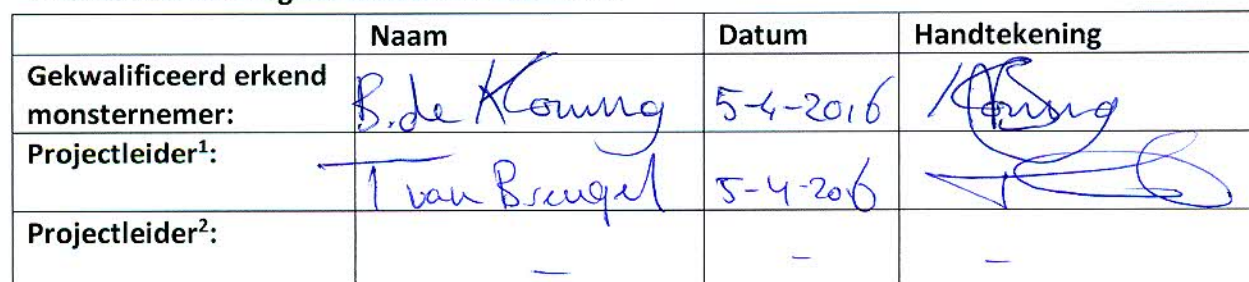 Naam Datum Handtekening
Gekwalificeerd erkend
monsternemer: B. de Koning 5-4-2016 Koning
Projectleider¹: T van Breugel 5-4-2016
Projectleider²: - - -